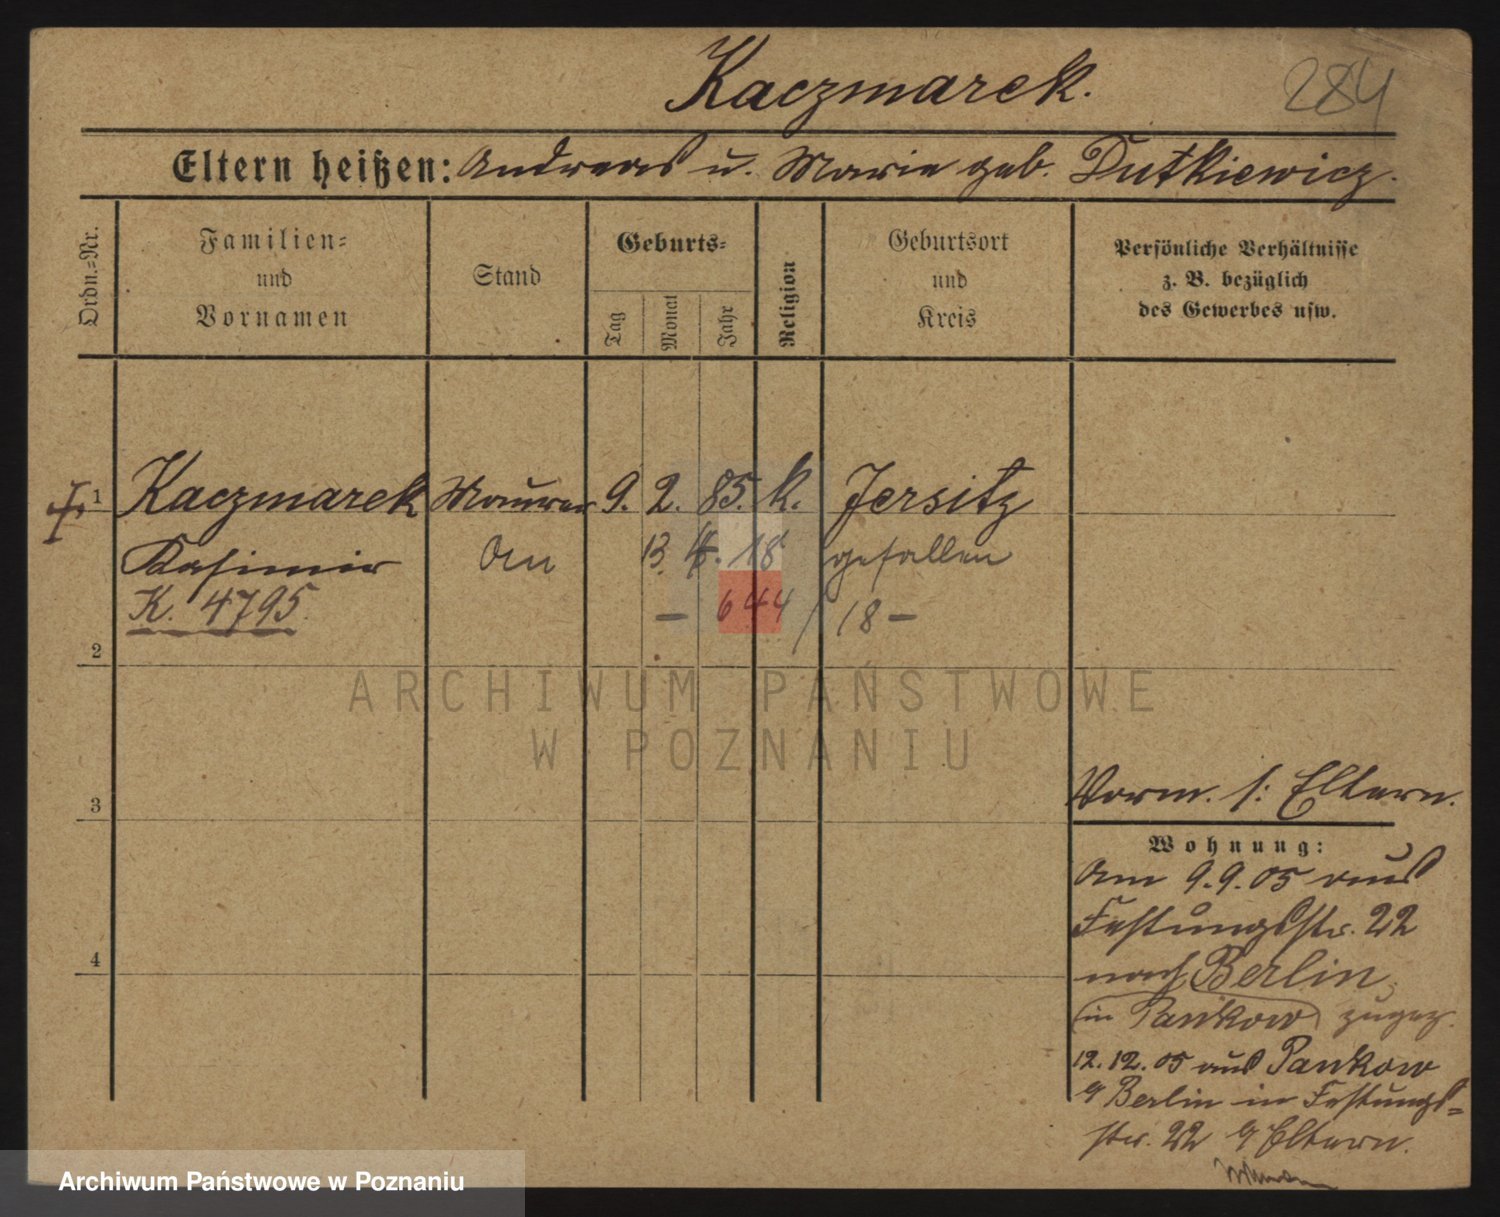 Kaczmarek.
284
Eltern heißen: Andreas u. Marie geb. Dutkiewicz.
Ordn.=Nr.
Familien=
und
Vornamen
Stand
Geburts=
Tag
Monat
Jahr
Religion
Geburtsort
und
Kreis
Persönliche Verhältnisse
z. B. bezüglich
des Gewerbes usw.
1 Kaczmarek Maurer 9. 2. 85. k. Jersitz
Kasimir Am 13. 4. 18 gefallen
K. 4795. – 644/18 –
2
ARCHIWUM PAŃSTWOWE
W POZNANIU
3
Vorm. s: Eltern.
Wohnung:
Am 9.9.05 aus
Festungsstr. 22
nach Berlin,
(in Pankow) zugez.
4
12.12.05 aus Pankow
Berlin in Festungs=
str. 22 Eltern.
Archiwum Państwowe w Poznaniu